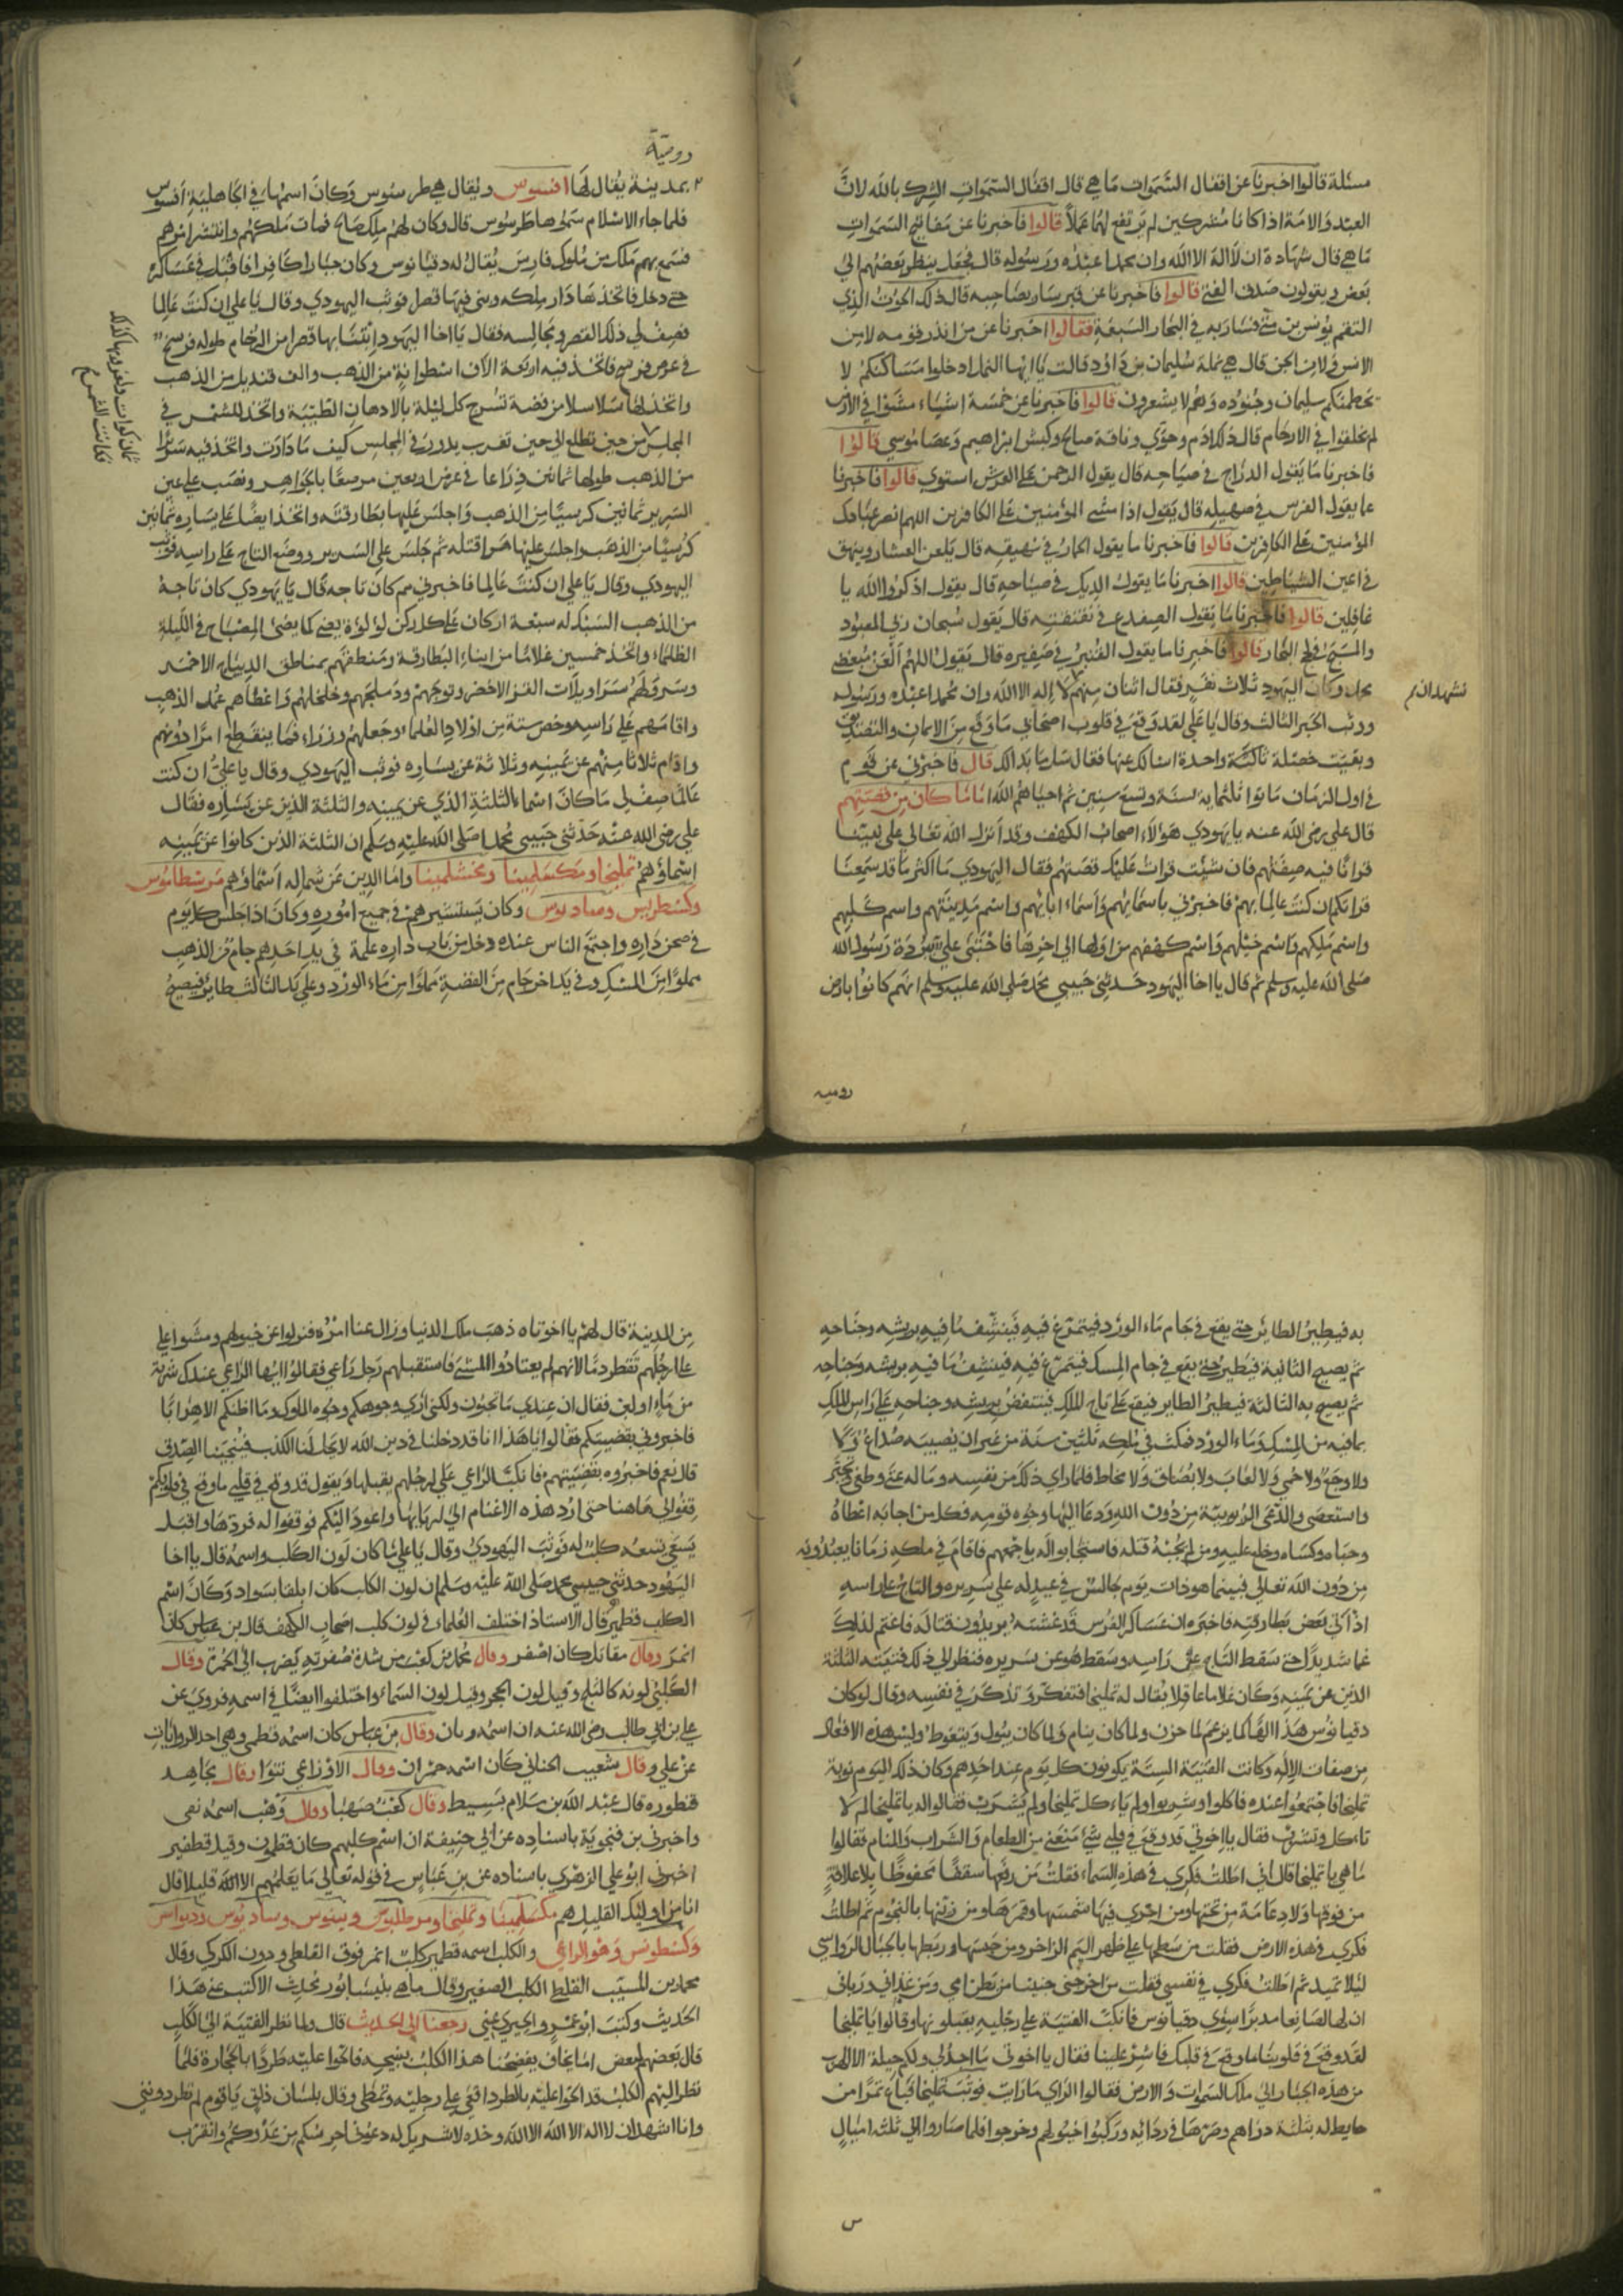 مسئلة قالوا اخبرنا عن اقفال السموات ما هي قال اقفال السموات الشرك بالله لان
العبد والامة اذا كانا مشركين لم يرتفع لهما عملا قالوا فاخبرنا عن مفاتيح السموات
ما هي قال شهادة ان لا اله الا الله وان محمدا عبده ورسوله قال فجعل ينظر بعضهم الي
بعض ويقولون صدق الفتي قالوا فاخبرنا عن قبر سار بصاحبه قال ذلك الحوت الذي
التقم يونس بن متي فسار به في البحار السبعة فقالوا اخبرنا عن من انذر قومه لا من
الانس ولا من الجن قال هي نملة سليمان بن داود قالت يا ايها النمل ادخلوا مساكنكم لا
يحطمنكم سليمان وجنوده وهم لا يشعرون قالوا فاخبرنا عن خمسة اشياء مشوا في الارض
لم يخلقوا في الارحام قال ذلك ادم وحوي وناقة صالح وكبش ابراهيم وعصا موسي قالوا
فاخبرنا ما يقول الدراج في صياحه قال يقول الرحمن علي العرش استوي قالوا فاخبرنا
ما يقول الفرس في صهيله قال يقول اذا مشي المؤمنين علي الكافرين اللهم انصر عبادك
المؤمنين علي الكافرين قالوا فاخبرنا ما يقول الحمار في نهيقه قال يلعن العشار وينهق
في اعين الشياطين قالوا اخبرنا ما يقول الديك في صياحه قال يقول اذكروا الله يا
غافلين قالوا فاخبرنا ما يقول الضفدع في نقنقته قال يقول سبحان ربي المعبود
والمسبح في لجج البحار قالوا فاخبرنا ما يقول القنبر في صفيره قال يقول اللهم العن مبغضي
محمد وكان اليهود ثلاث نفر فقال اثنان منهم لا اله الا الله وان محمدا عبده ورسوله
نشهد ان
ووثب الحبر الثالث وقال يا علي لقد وقع في قلوب اصحابي ما وقع من الايمان والتصديق
وبقيت خصلة واحدة اسالك عنها فقال سل ما بدالك قال فاخبرني عن قوم
في اول الزمان ماتوا ثلثماية سنة وتسع سنين ثم احياهم الله ما كان من قصتهم
قال علي رضي الله عنه يا يهودي هؤلاء اصحاب الكهف وقد انزل الله تعالي علي نبينا
قرانا فيه صفتهم فان شئت قرات عليك قصتهم فقال اليهودي ما اكثر ما قد سمعنا
قرانكم ان كنت عالما بهم فاخبرني باسمائهم واسماء ابائهم واسم مدينتهم واسم كلبهم
واسم ملكهم واسم جبلهم واسم كهفهم من اولها الي اخرها فاحتبي علي ببردة رسول الله
صلي الله عليه وسلم ثم قال يا اخا اليهود حدثني حبيبي محمد صلي الله عليه وسلم انهم كانوا بارض
رومية
رومية
بمدينة يقال لها افسوس ويقال هي طرسوس وكان اسمها في الجاهلية افسوس
فلما جاء الاسلام سموها طرسوس قال وكان لهم ملك صالح فمات ملكهم وانتشر امرهم
فسمع بهم ملك من ملوك فارس يقال له دقيانوس وكان جبارا كافرا فاقبل في عساكره
حتي دخل فاتخذها دار ملكه وبني فيها قصرا فوثب اليهودي وقال يا علي ان كنت عالما
فصف لي ذلك القصر ومجالسه فقال يا اخا اليهود ابتنا بها قصرا من الرخام طوله فرسخ
في عرض فرسخ فاتخذ فيه اربعة الاف اسطوانة من الذهب والف قنديل من الذهب
واتخذ لها سلاسلا من فضة تسرج كل ليلة بالادهان الطيبة واتخذ للشمس في
المجلس من حين تطلع الي حين تغرب يدور في المجلس كيف ما دارت واتخذ فيه سريرا
من الذهب طولها ثمانين ذراعا في عرض اربعين مرصعا بالجواهر ونصب علي يمين
السرير ثمانين كرسيا من الذهب واجلس عليها بطارقته واتخذ ايضا علي يساره ثمانين
كرسيا من الذهب واجلس عليها هراقلته ثم جلس علي السرير ووضع التاج علي راسه فوثب
اليهودي وقال يا علي ان كنت عالما فاخبرني مم كان تاجه قال يا يهودي كان تاجه
من الذهب السبك له سبعة اركان علي كل ركن لؤلؤة يضئ كما يضئ المصباح في الليلة
الظلماء واتخذ خمسين غلاما من ابناء البطارقة ومنطقهم بمناطق الديباج الاحمر
وسرولهم سراويلات القز الاخضر وتوجهم ودملجهم وخلخلهم واعطاهم عمد الذهب
واقامهم علي راسه وخص ستة من اولاد العلماء وجعلهم وزراء فما ينقطع امرا دونهم
واقام ثلاثا منهم عن يمينه وثلاثة عن يساره فوثب اليهودي وقال يا علي ان كنت
عالما صف لي ما كان اسماء الثلثة الذي عن يمينه والثلثة الذين عن يساره فقال
علي رضي الله عنه حدثني حبيبي محمد صلي الله عليه وسلم ان الثلثة الذين كانوا عن يمينه
اسماؤهم تمليخا ومكسلمينا ومحسلمينا واما الذين عن شماله اسماؤهم مرسطانوس
وكسطريس وسادنوس وكان يستشيرهم في جميع اموره وكان اذا جلس كل يوم
في صحن داره واجتمع الناس عنده دخل من باب داره علمة في يد احدهم جام من الذهب
مملوا من المسك وفي يد اخر جام من الفضة مملوا من ماء الورد وعلي يد الثالث طاير فيصيح
به فيطير الطائر حتي يقع في جام ماء الورد فيتمرغ فيه فينشف ما فيه بريشه وجناحه
ثم يصيح الثانية فيطير حتي يقع في جام المسك فيتمرغ فيه فينشف ما فيه بريشه وجناحه
ثم يصيح به الثالثة فيطير الطاير فيقع علي تاج الملك فينتفض بريشه وجناحه علي راس الملك
بما فيه من المسك وماء الورد فمكث في ملكه ثلثين سنة من غير ان يصيبه صداع ولا
ولا وجع ولا حمي ولا لعاب ولا بصاق ولا مخاط فلما راي ذلك من نفسه وماله عتي وطغي وتجبر
واستعصي وادعي الربوبية من دون الله ودعا اليها وجوه قومه فكل من اجابه اعطاه
وحباه وكساه وخلع عليه ومن لم يجبه قتله فاستجابوا له باجمعهم فاقام في ملكه زمانا يعبدونه
من دون الله تعالي فبينما هو ذات يوم جالس في عيد له علي سريره والتاج علي راسه
اذ اتي بعض بطارقته فاخبره ان عساكر الفرس قد غشته يريدون قتاله فاغتم لذلك
غما شديدا حتي سقط التاج عن راسه وسقط هو عن سريره فنظر الي ذلك فتيته الثلثة
الذين عن يمينه وكان غلاما عاقلا يقال له تمليخا فتفكر وتذكر في نفسه وقال لو كان
دقيانوس هذا الها كما يزعم لما حزن ولما كان ينام ولما كان يبول ويتغوط وليس هذه الافعال
من صفات الاله وكانت الفتية الستة يكونون كل يوم عند احدهم وكان ذلك اليوم نوبة
تمليخا فاجتمعوا عنده فاكلوا وشربوا ولم ياءكل تمليخا ولم يشرب فقالوا له يا تمليخا لم لا
تاءكل وتشرب فقال يا اخوتي قد وقع في قلبي شئ منعني من الطعام والشراب والمنام فقالوا
ما هي يا تمليخا قال اني اطلت فكري في هذه السماء فقلت من رفعها سقفا محفوظا بلا علاقة
من فوقها ولا دعامة من تحتها ومن اجري فيها شمسها وقمرها ومن زينها بالنجوم ثم اطلت
فكري في هذه الارض فقلت من سطحها علي ظهر اليم الزاخر ومن حبسها وربطها بالجبال الرواسي
ليلا تميد ثم اطلت فكري في نفسي فقلت من اخرجني جنينا من بطن امي ومن غذاني ورباني
ان لها صانعا مدبرا سوي دقيانوس فانكبت الفتية علي رجليه يقبلونها وقالوا يا تمليخا
لقد وقع في قلوبنا ما وقع في قلبك فاشر علينا فقال يا اخوتي ما اجد لي ولكم حيلة الا الهرب
من هذه الجبار الي ملك السموات والارض فقالوا الراي ما رايت فوثب تمليخا فباع تمرا من
حايط له بثلثة دراهم وصرها في ردائه وركبوا خيولهم وخرجوا فلما صاروا الي ثلثة اميال
من المدينة قال لهم يا اخوتاه ذهب ملك الدنيا وزال عنا امره فنزلوا عن خيولهم ومشوا علي
علي ارجلهم تقطر دما لانهم لم يعتادوا المشي فاستقبلهم رجل راعي فقالوا ايها الراعي عندك شربة
من ماء او لبن فقال ان عندي ما تحبون ولكني اري وجوهكم وجوه الملوك وما اظنكم الا هرابا
فاخبروني بقضيتكم فقالوا يا هذا انا قد دخلنا في دين الله لا يحل لنا الكذب فينجينا الصدق
قال نعم فاخبروه بقضيتهم فانكب الراعي علي ارجلهم يقبلها ويقول قد وقع في قلبي ما وقع في قلوبكم
قفوا لي هاهنا حتي ارد هذه الاغنام الي اربابها واعود اليكم فوقفوا له فردها واقبل
يسعي يتبعه كلب له فوثب اليهودي وقال يا علي ما كان لون الكلب واسمه قال يا اخا
اليهود حدثني حبيبي محمد صلي الله عليه وسلم ان لون الكلب كان ابلقا بسواد وكان اسم
الكلب قطمير قال الاستاذ اختلف العلماء في لون كلب اصحاب الكهف قال بن عباس كان
انمر وقال مقاتل كان اصفر وقال محمد بن كعب من شدة صفرته يضرب الي الحمرة وقال
الكلبي لونه كالثلج وقيل لون الحجر وقيل لون السماء واختلفوا ايضا في اسمه فروي عن
علي بن ابي طالب رضي الله عنه ان اسمه ريان وقال بن عباس كان اسمه قطمير وهي احد الروايات
عن علي وقال شعيب الجبائي كان اسمه حمران وقال الاوزاعي نتوا وقال مجاهد
قنطوره قال عبد الله بن سلام بسيط وقال كعب صهبا وقال وهب اسمه نقي
واخبرني بن فنجوية باسناده عن ابي حنيفة ان اسم كلبهم كان قطمون وقيل قطفير
اخبرني ابو علي الزهري باسناده عن بن عباس في قوله تعالي ما يعلمهم الا الله قليلا قال
انا من اوليك القليل هم مكسلمينا وتمليخا ومرطليوس وبينوس وسادنوس ودبواس
وكسطونس وهو الراعي والكلب اسمه قطمير كلب انمر فوق القلطي ودون الكركي وقال
محمد بن المسيب القلطي الكلب الصغير وقال ما هي بنيسابور محدث الا كتب عني هذا
الحديث وكتب ابو عمرو الحيري عني رجعنا الي الحديث قال ولما نظر الفتية الي الكلب
قال بعضهم لبعض انا نخاف يفضحنا هذا الكلب بنبيحه فالحوا عليه طردا بالحجارة فلما
نظر اليهم الكلب قد الحوا عليه بالطرد اقعي علي رجليه وتمطي وقال بلسان ذلق يا قوم لم تطردونني
وانا اشهد ان لا اله الا الله وحده لا شريك له دعوني احرسكم من عدوكم واتقرب